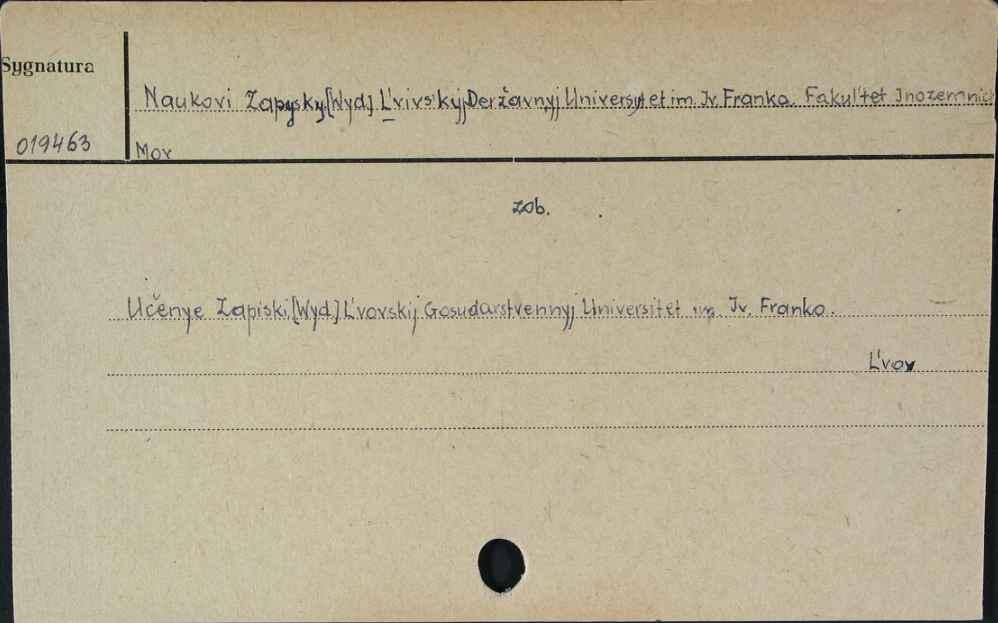 Sygnatura
Naukovi Zapysky.[Wyd.] L'vivs'kyj Deržavnyj Universytet im. Iv. Franka. Fakul'tet Inozemnich
019463
Mov
zob.
Učenye Zapiski.[Wyd.] L'vovskij Gosudarstvennyj Universitet im. Iv. Franko.
L'vov